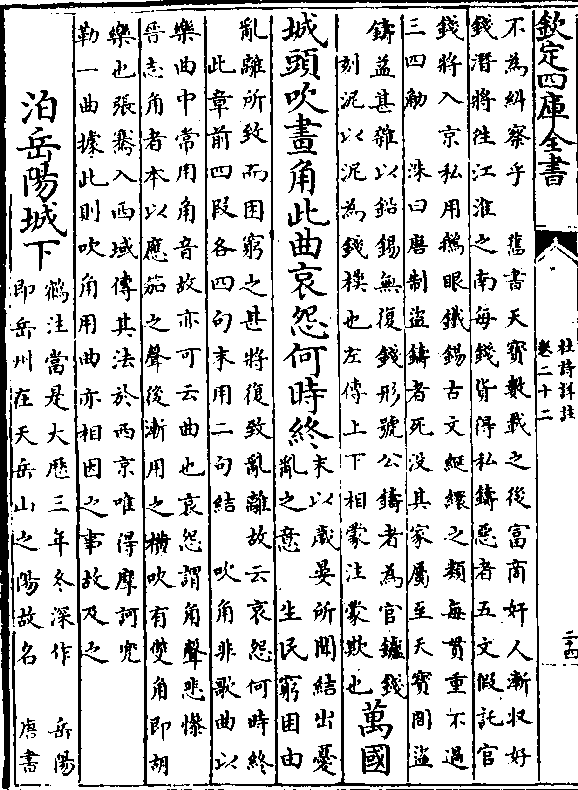 欽定四庫全書
杜詩詳註
卷二十二
二十四
不為糾察乎　舊書天寶數載之後富商奸人漸收好
錢潛將往江淮之南每錢貨得私鑄惡者五文假託官
錢將入京私用鵝眼鐵錫古文綖繯之類每貫重不過
三四觔　洙曰唐制盜鑄者死沒其家屬至天寶間盜
鑄益甚雜以鉛錫無復錢形號公鑄者為官鑪錢
刻泥以泥為錢模也左傳上下相蒙注蒙欺也
萬國
城頭吹畫角此曲哀怨何時終
末以歲晏所聞結出憂
亂之意　生民窮困由
亂離所致而困窮之甚將復致亂離故云哀怨何時終
此章前四段各四句末用二句結　吹角非歌曲以
樂曲中常用角音故亦可云曲也哀怨謂角聲悲慘
晉志角者本以應笳之聲後漸用之橫吹有雙角即胡
樂也張騫入西域傳其法於西京唯得摩訶兜
勒一曲據此則吹角用曲亦相因之事故及之
泊岳陽城下
鶴注當是大曆三年冬深作　岳陽
即岳州在天岳山之陽故名　唐書